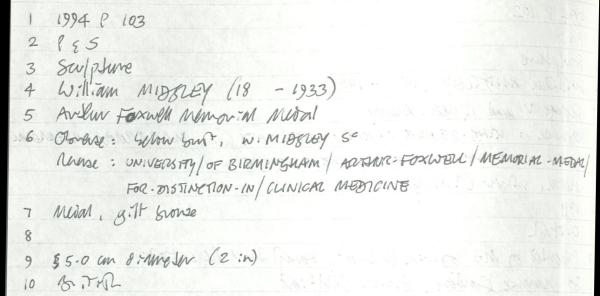 1 1994 P 103
2 P & S
3 Sculpture
4 William MIDGLEY (18 - 1933)
5 Arthur Foxwell Memorial Medal
6 Obverse: below bust, W. MIDGLEY Sc
Reverse: UNIVERSITY/OF BIRMINGHAM/ARTHUR-FOXWELL/MEMORIAL-MEDAL/
FOR-DISTINCTION-IN/CLINICAL MEDICINE
7 Medal, gilt bronze
8
9 5.0 cm diameter (2 in)
10 British